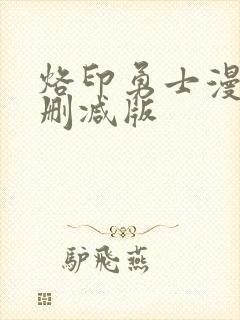 烙印勇士漫
删减版
驴飛燕